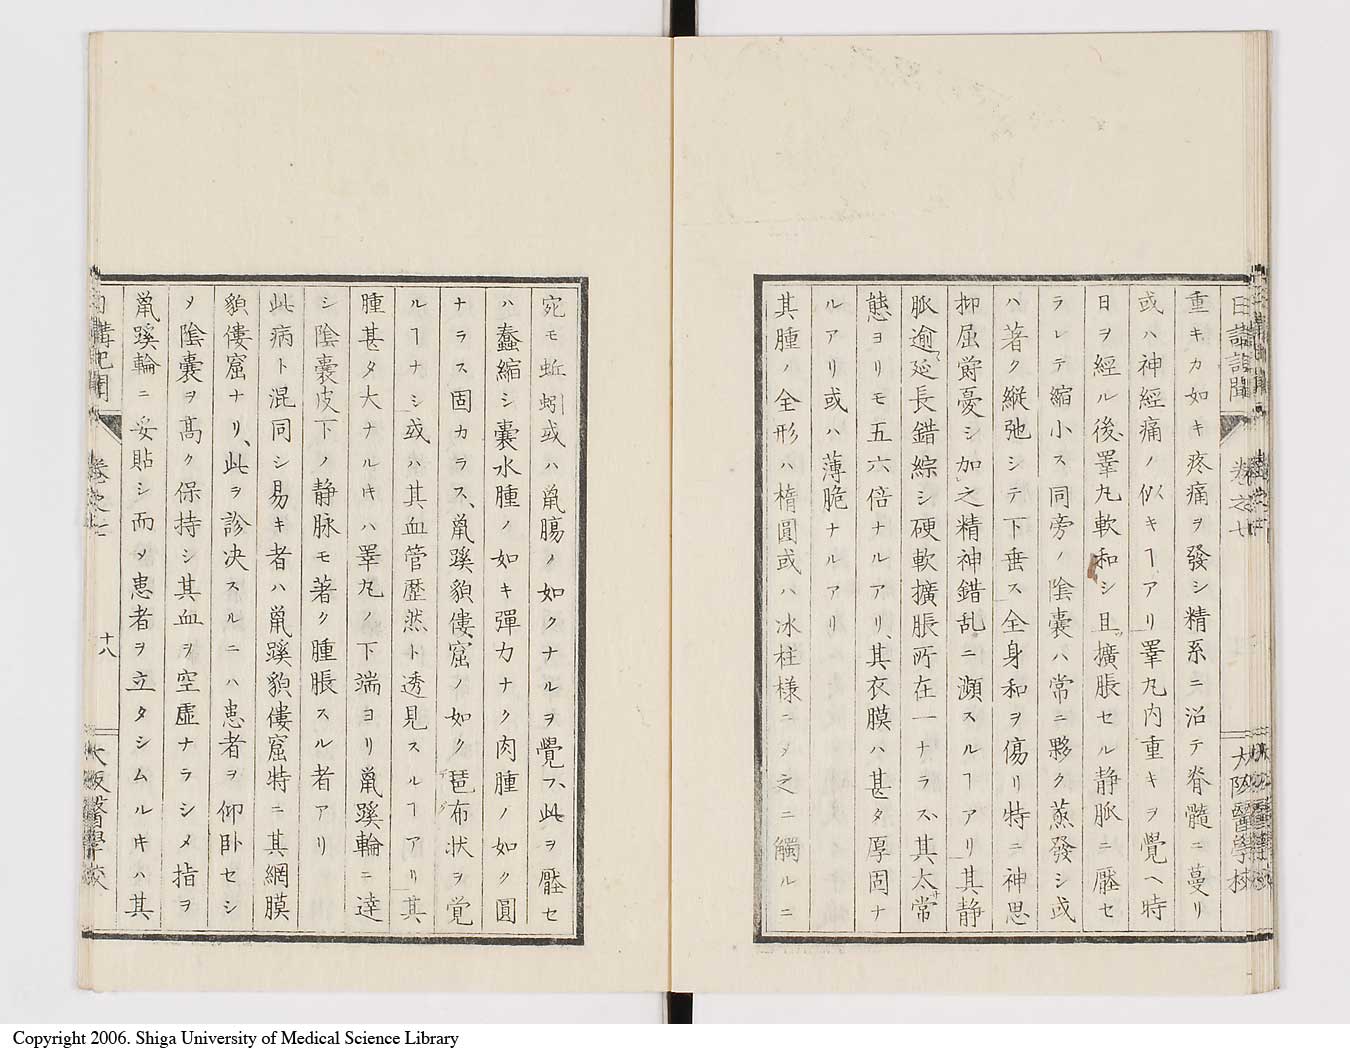 日講記聞 卷之七 大阪醫學校
重キカ如キ疼痛ヲ發シ精系ニ沿テ脊髓ニ蔓リ
或ハ神經痛ノ似キヿアリ睪丸内重キヲ覺ヘ時
日ヲ經ル後、睪丸軟和シ且擴脹セル静脈ニ壓セ
ラレテ縮小ス同旁ノ陰囊ハ常ニ夥ク蒸發シ或
ハ著ク縦弛シテ下垂ス全身和ヲ傷リ特ニ神思
抑屈欝憂シ加之精神錯乱ニ瀕スルヿアリ其静
脈逾延長錯綜シ硬軟擴脹所在一ナラス、其太常
態ヨリモ五六倍ナルアリ、其衣膜ハ甚タ厚固ナ
ルアリ或ハ薄脆ナルアリ
其腫ノ全形ハ楕圓或ハ冰柱様ニメ之ニ觸ルニ
宛モ蚯蚓或ハ鼠膓ノ如クナルヲ覺フ、此ヲ壓セ
ハ蠢縮シ囊水腫ノ如キ彈力ナク肉腫ノ如ク圓
ナラス固カラス、鼠蹊貌僂窟ノ如ク琶布状ヲ覺
ルヿナシ或ハ其血管歴然ト透見スルヿアリ其
腫甚タ大ナルキハ睪丸ノ下端ヨリ鼠蹊輪ニ達
シ陰囊皮下ノ静脉モ著ク腫脹スル者アリ
此病ト混同シ易キ者ハ鼠蹊貌僂窟特ニ其網膜
貌僂窟ナリ、此ヲ診决スルニハ患者ヲ仰卧セシ
メ陰囊ヲ髙ク保持シ其血ヲ空虚ナラシメ指ヲ
鼠蹊輪ニ妥貼シ而メ患者ヲ立タシムルキハ其
日講記聞 卷之七 十八 大阪醫學校
Copyright 2006. Shiga University of Medical Science Library